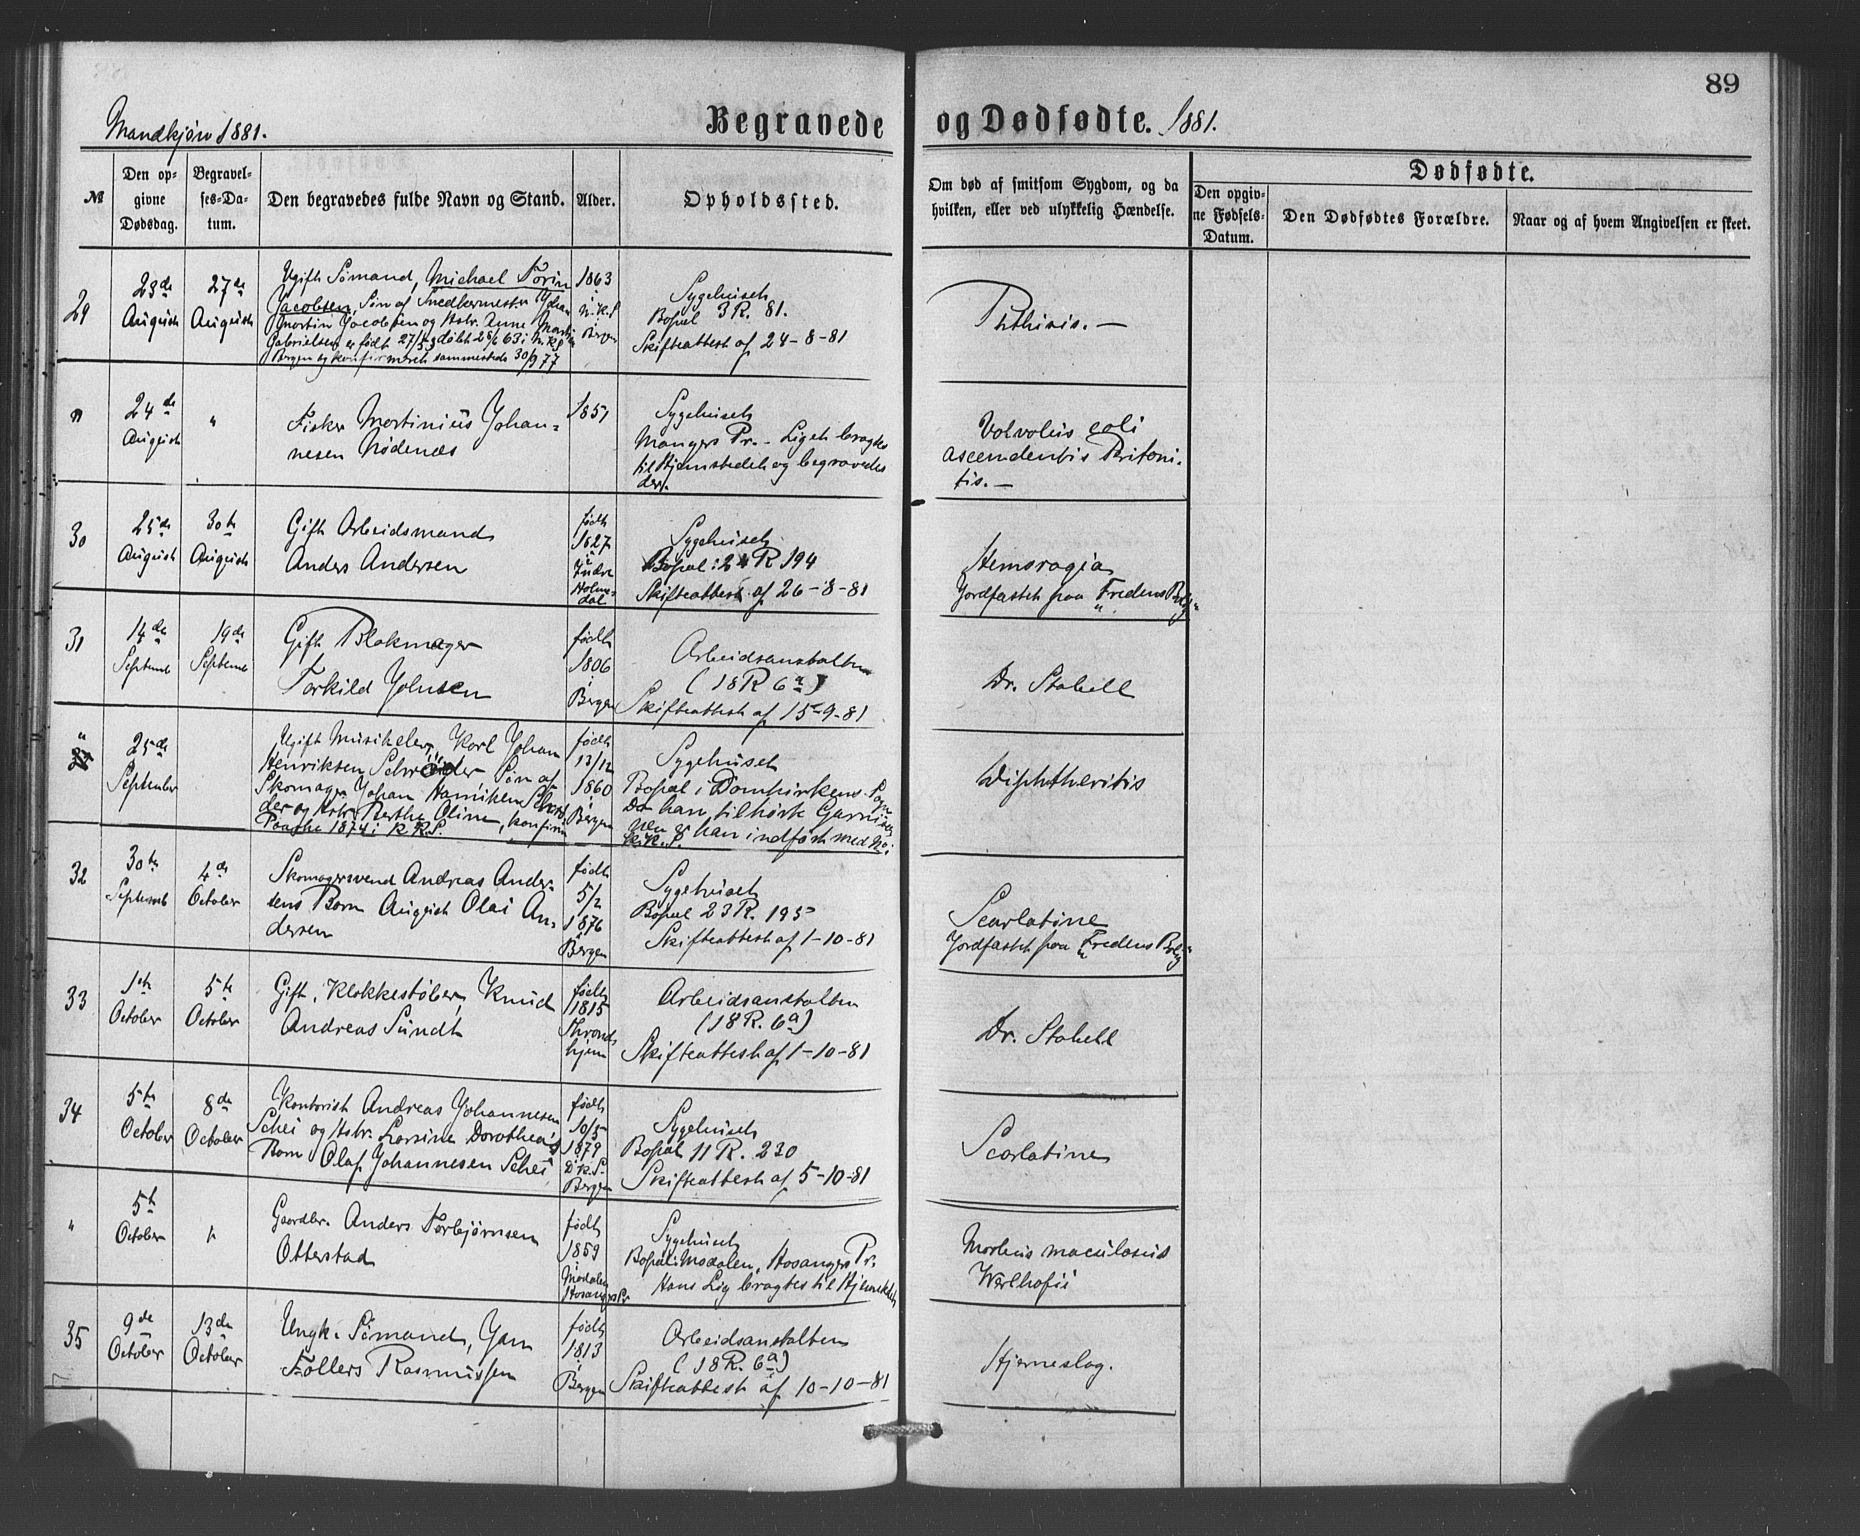 89
Mandkjøn 1881.
Begravede og Dødfødte. 1881.
№
Den op-
givne
Dødsdag.
Begravel-
ses-Da-
tum.
Den begravedes fulde Navn og Stand.
Alder.
Opholdssted.
Om død af smitsom Sygdom, og da
hvilken, eller ved ulykkelig Hændelse.
Dødfødte.
Den opgiv-
ne Fødsels-
Datum.
Den Dødfødtes Forældre.
Naar og af hvem Angivelsen er skeet.
29
23de
August
27de
August
Ugift Sømand, Michael
Jacobsen, Søn af Snedkermester Johan
Martin Jacobsen og Hstr. Anne
Gabrielsen er født døbt i N. K. S
Bergen og konfirmeret sammesteds 30/9 77
1863
i
N.K.S
Bergen
Sygehuset
Bopæl 3 R. 81.
Skifteattest af 24-8-81
Phthisis. —
"
24de
August
"
Fisker Mortinius Johan=
nesen Nødenæs
1851
Sygehuset
Mangers Pr. - Liget bragtes
til Hjemstedet og begravedes
der.
Volvolus coli
ascendentis Peritoni-
tis. —
30
25de
August
30te
August
Gift Arbeidsmand
Anders Andersen
født
1827
i
Indre
Holme-
dal
Sygehuset
Bopæl: 24 R 194
Skifteattest af 26-8-81
Hemoragia
Jordfæstet paa "Fredens Bolig"
31
14de
Septemb
19de
Septemb
Gift Blokmager
Torkild Johnsen
født
1806
i
Bergen
Arbeidsanstalten
(18 R 6a)
Skifteattest af 15-9-81
Dr. Stabell
"
25de
September
Ugift Musikelev, Karl Johan
Henriksen Schrøder Søn af
Skomager Johan
der og Hstr. Berthe Oline, konfirm
Paaske 1874 i K.K.S.
født
13/12
1860
i
Bergen
Sygehuset
Bopæl i Domkirkens Sogn
Da han tilhørte Garnison
men er han indført med No i
K.K.S.
Diphtheritis
32
30te
Septemb
4de
October
Skomagersvend Andreas Ander-
sens Barn August Olai An-
dersen
født
5/2
1876
i
Bergen
Sygehuset
Bopæl 23 R. 195
Skifteattest af 1-10-81
Scarlatine
Jordfæstet paa "Fredens Bolig"
33
1ste
October
5te
October
Gift, Klokkestøber, Knud
Andreas Sundt
født
1815
Thrond-
hjem
Arbeidsanstalten
(18 R. 6a)
Skifteattest af 1-10-81
Dr. Stabell
34
5te
October
8de
October
Kontorist Andreas Johannesen
Schei og Hstr. Larsine Dorothea's
Barn Olaf Johannesen Schei
født
10/5
1879
D.K.S.
Bergen
Sygehuset
Bopæl 11 R. 230
Skifteattest af 5-10-81
Scarlatine
"
5te
October
"
Gaardbr. Anders Torbjørnsen
Otterstad
født
1859
i
Modalen
Hosangers Pr
Sygehuset
Bopæl: Modalen, Hosangers Pr.
Hans Lig bragtes til Hjemstedet
Morbus maculosus
Werlhofii
35
9de
October
13de
October
Ungk. Sømand, Jan
Follers Rasmussen
født
1813
i
Bergen
Arbeidsanstalten
(18 R. 6a)
Skifteattest af 10-10-81
Hjerneslag.